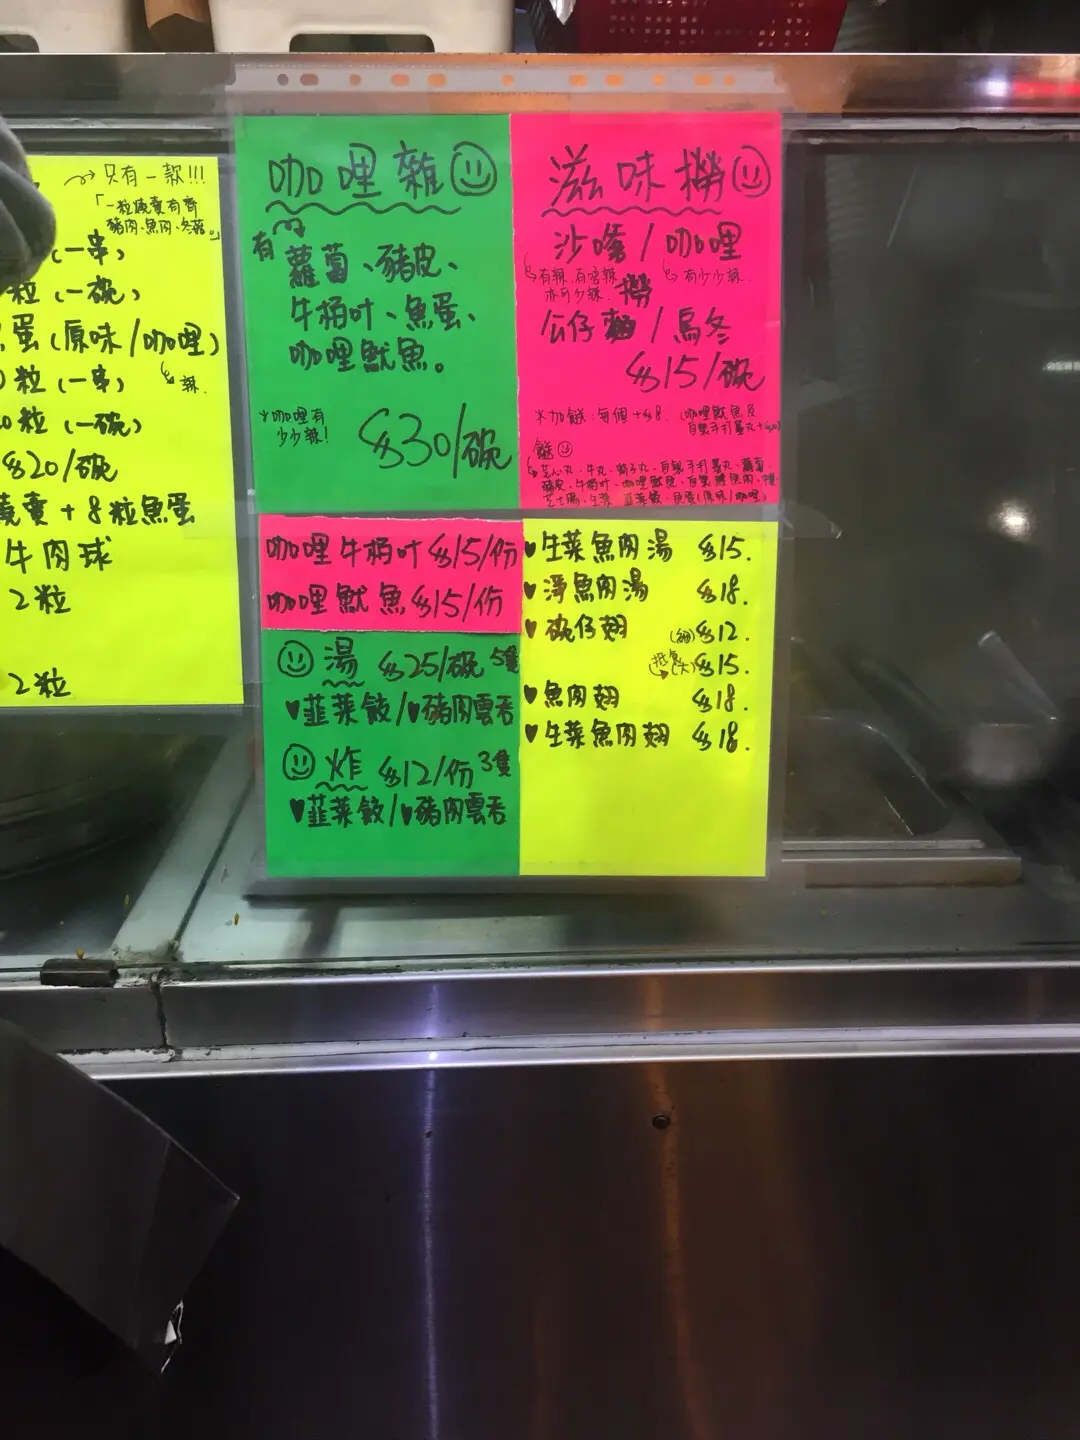 只有一款!!!
「一粒燒賣有齊
豬肉、魚肉、冬菇。」
(一串)
粒(一碗)
蛋(原味/咖哩)
辣.
粒(一串)
粒(一碗)
$20/碗
燒賣+8粒魚蛋
牛肉球
2粒
2粒
咖哩雜
有
蘿蔔、豬皮、
牛栢叶、魚蛋、
咖哩魷魚。
*咖哩有
少少辣!
$30/碗
滋味撈
沙嗲/咖哩
有辣,有唔辣
亦可少辣.
有少少辣.
撈
公仔麵/烏冬
$15/碗
*加餸:每個+$8.
(咖哩魷魚及
餸
咖哩牛栢叶$15/份
咖哩魷魚$15/份
湯 $25/碗 5隻
♥韮菜餃/♥豬肉雲吞
炸 $12/份 3隻
♥韮菜餃/♥豬肉雲吞
♥生菜魚肉湯 $15.
♥淨魚肉湯 $18.
♥碗仔翅 (細)$12.
(大)$15.
♥魚肉翅 $18.
♥生菜魚肉翅 $18.